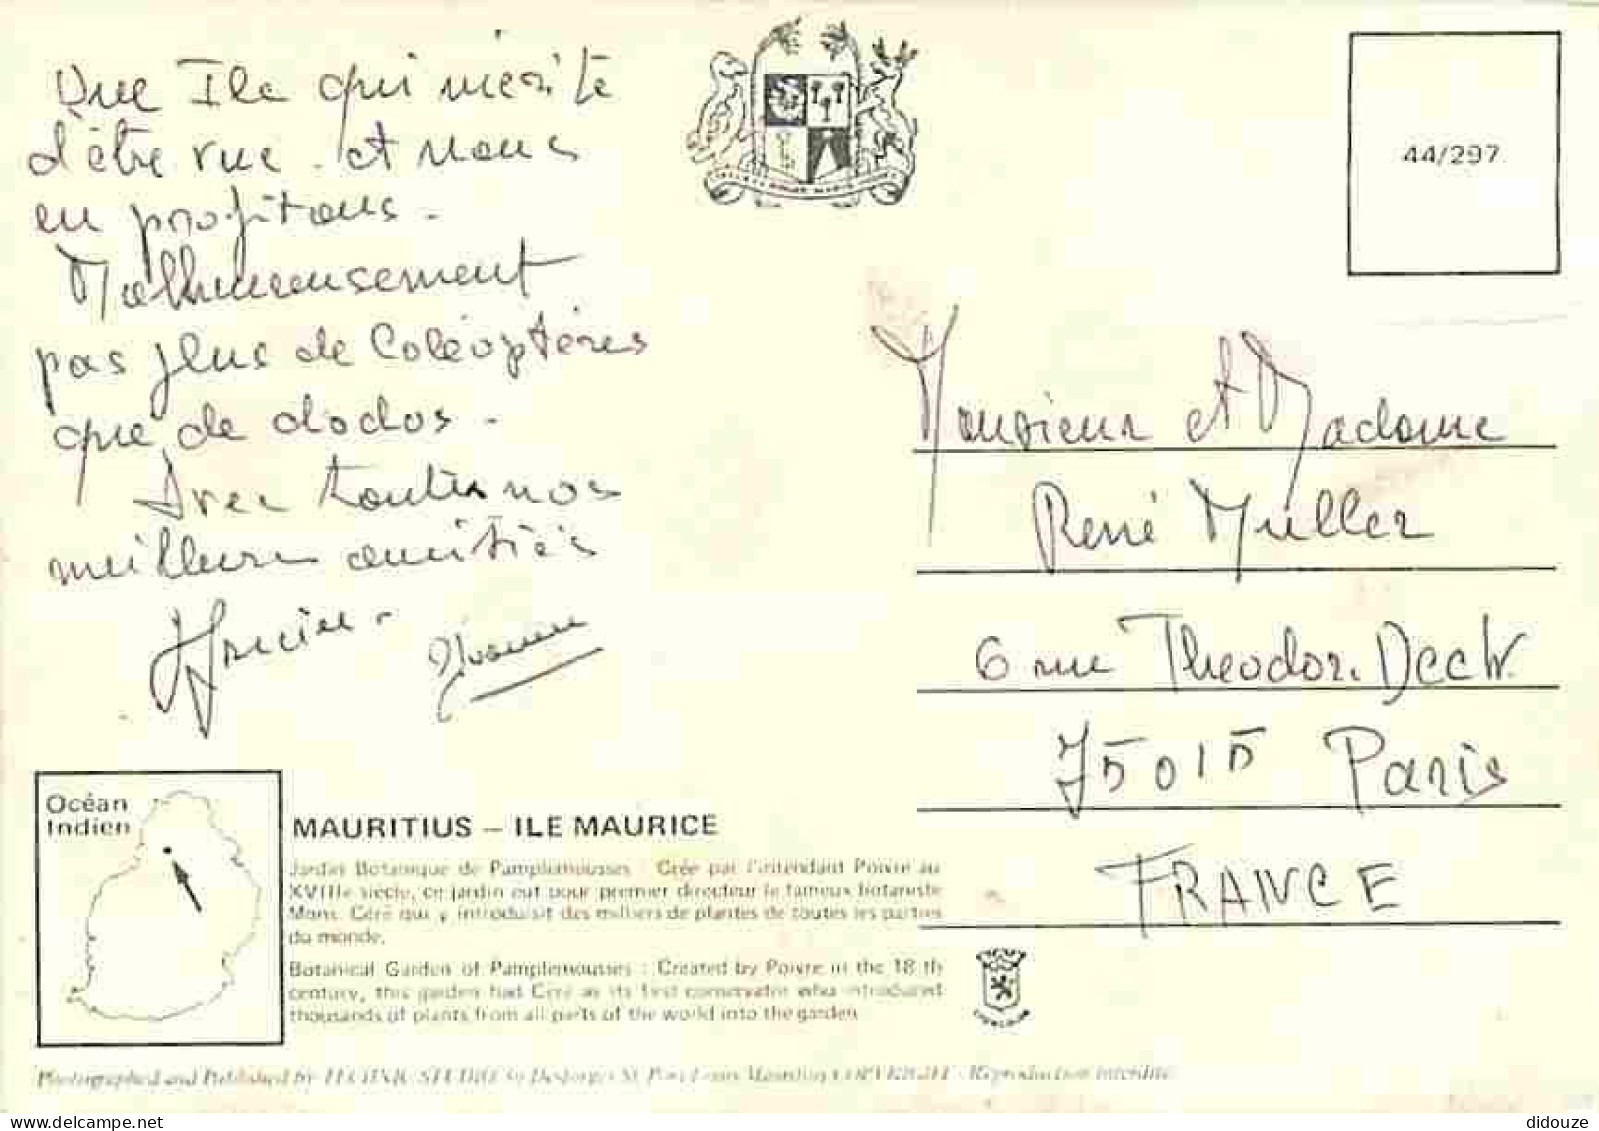 Une Ile qui mérite
d'être vue. et nous
en profitons.
Malheureusement
pas plus de Coléoptères
que de dodos.
Avec toutes nos
meilleures amitiés
Yvonne
44/297
Monsieur et Madame
René Müller
6 rue Theodor. Deck
75015 Paris
FRANCE
Océan
Indien
MAURITIUS – ILE MAURICE
Jardin Botanique de Pamplemousses : Crée par l'intendant Poivre au
XVIIIe siècle, ce jardin eut pour premier directeur le fameux botaniste
Mons. Céré qui y introduisit des milliers de plantes de toutes les parties
du monde.
Botanical Garden of Pamplemousses : Created by Poivre in the 18 th
century, this garden had Céré as its first conservator who introduced
thousands of plants from all parts of the world into the garden
Photographed and Published by STUDIO Desforges St Port Louis Mauritius COPYRIGHT - Reproduction interdite
didouze